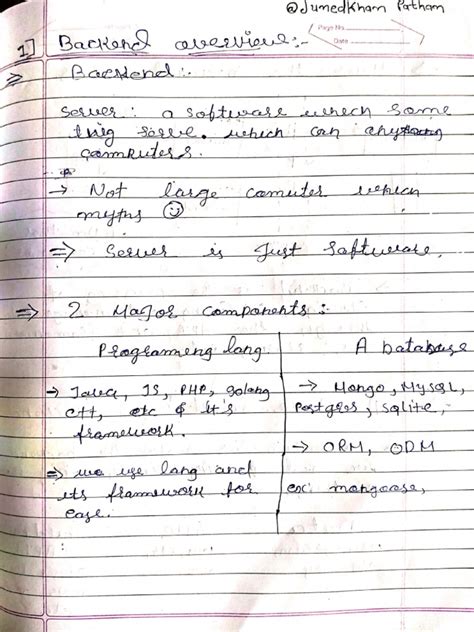 @Jumedkham Patham
Page No.
Date
1] Backend overview:-
⇒ Backend:-
Server: a software which some
thig serve. which can any
computers.
→ Not large comuter which
myths ☺
⇒ Server is Just Software.
⇒ 2 Major components:-
Programeng lang. | A Database
→ Java, JS, PHP, golang
c++, etc & it's
framework.
⇒ we use lang and
its framework for
ease.
→ Mongo, MySQL,
Postgres, sqlite,
→ ORM, ODM
ex: mongoose,